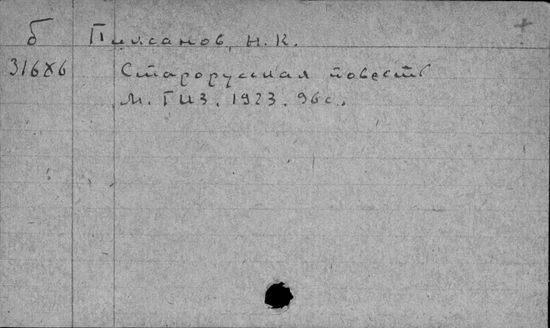 б Пиксанов, Н.К.
31686 Старорусская повесть
М. ГИЗ. 1923. 96 с.